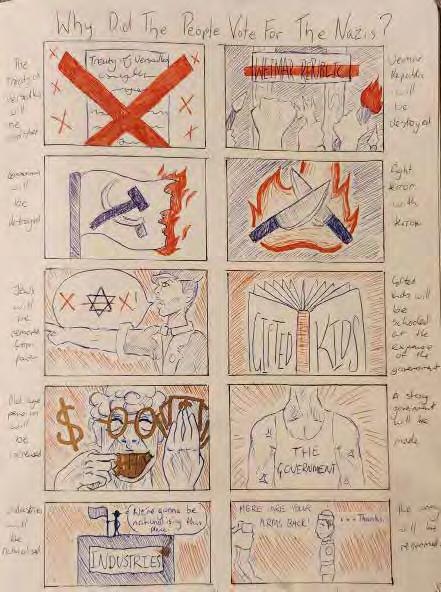 Why Did The People Vote For The Nazis?
The
Treaty of
Versailles
will
be
Treaty of Versailles
WEIMAR REPUBLIC
Weimar
Republic
will
be
destroyed
will
be
destroyed
Fight
terror
with
terror
Jews
will
be
removed
from
X X!
GIFTED KIDS
Gifted
kids will
be
schooled
at the
expense
of the
government
Old age
pension
will
be
increased
$
THE
GOVERNMENT
A strong
government
will be
made
Industries
will
be
nationalised
We're gonna be
nationalising this
place.
INDUSTRIES
HERE ARE YOUR
ARMS BACK!
... Thanks.
The army
will be